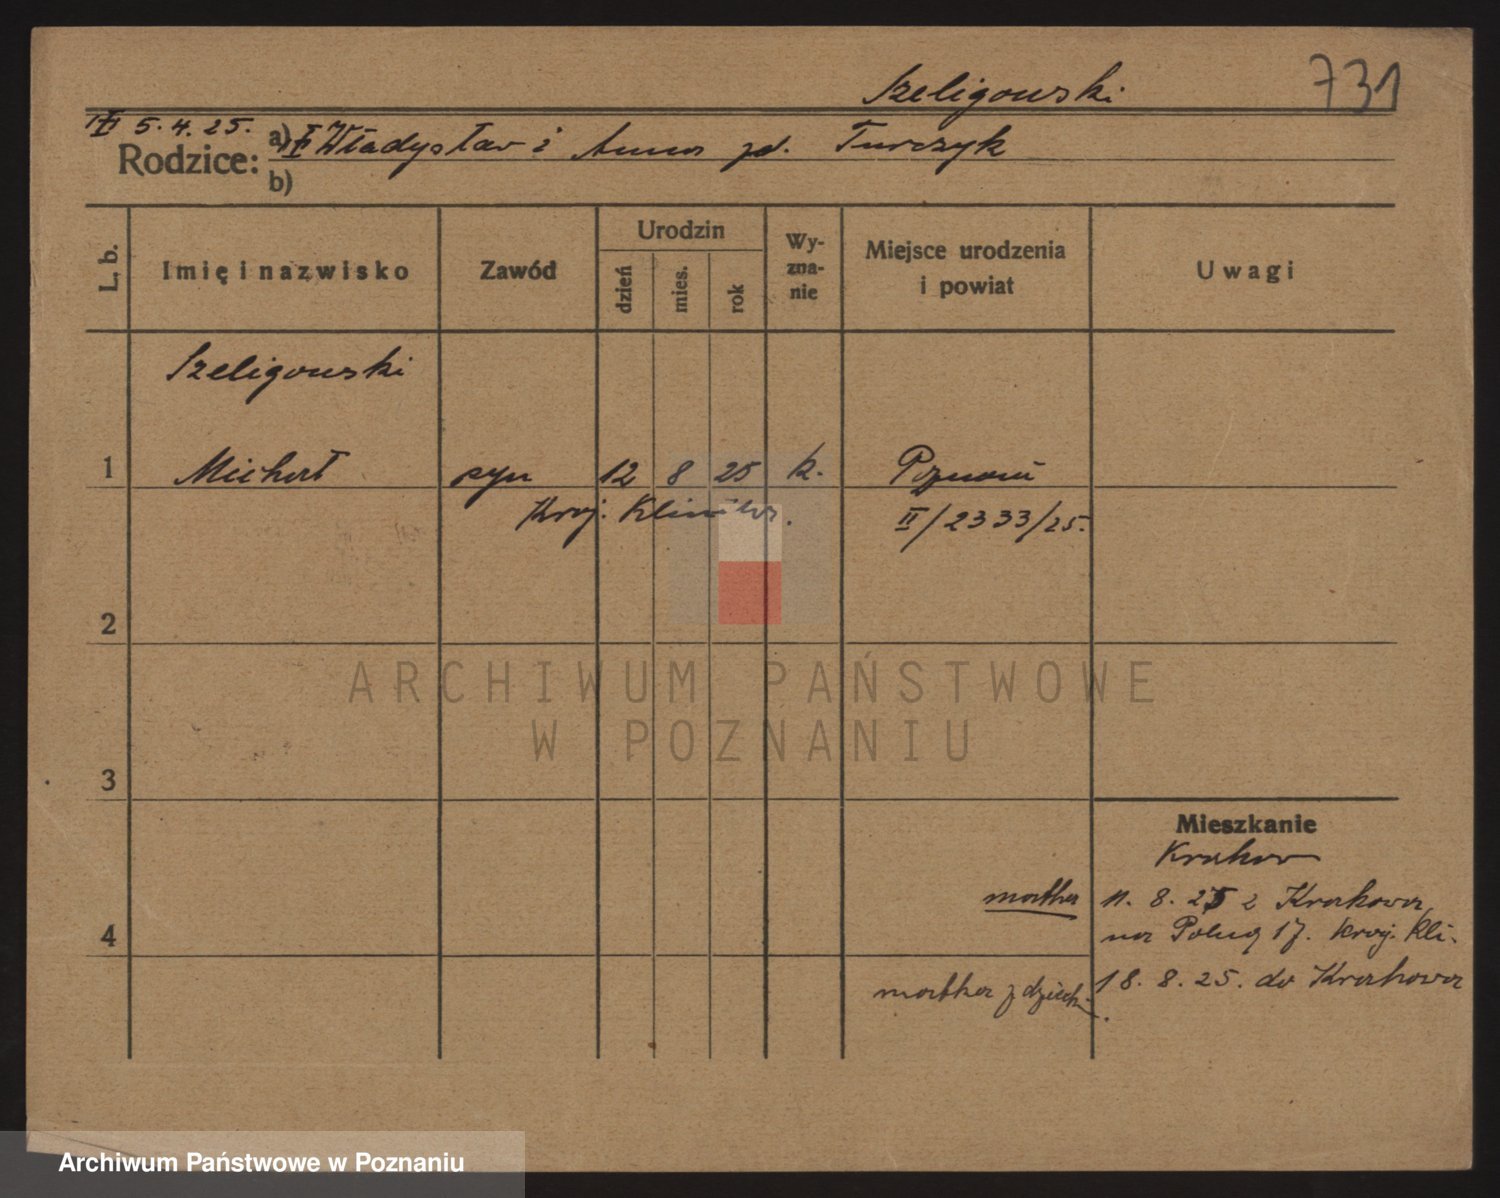 Szeligowski
731
1) 5.4.25.
Rodzice: a) Władysław i Anna zd. Turczyk
b)
L. b.
Imię i nazwisko
Zawód
Urodzin
dzień
mies.
rok
Wy-
zna-
nie
Miejsce urodzenia
i powiat
Uwagi
Szeligowski
1 Michał syn 12 8 25 k. Poznań
Kraj. Klinika. II/2333/25.
2
ARCHIWUM PAŃSTWOWE
W POZNANIU
3
Mieszkanie
Krakow
matka 11. 8. 25 z Krakowa
na Polną 17. Kraj. Kli.
4
matka z dzieck. 18. 8. 25. do Krakowa
Archiwum Państwowe w Poznaniu